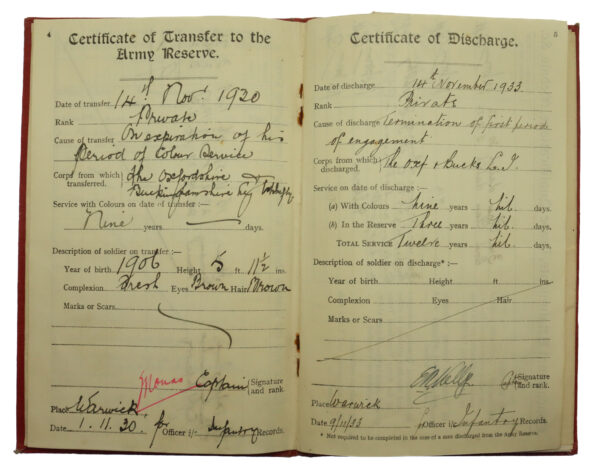 4
Certificate of Transfer to the
Army Reserve.
Date of transfer 14th Novr 1930
Rank Private
Cause of transfer On expiration of his
Period of Colour Service
Corps from which transferred. The Oxfordshire &
Buckinghamshire Lt Infantry
Service with Colours on date of transfer :—
Nine years — days.
Description of soldier on transfer :—
Year of birth 1906 Height 5 ft 11½ ins.
Complexion Fresh Eyes Brown Hair Brown
Marks or Scars
Captain Signature and rank.
Place Warwick
Date 1.11.30. for Officer i/c Infantry Records.
5
Certificate of Discharge.
Date of discharge 14th November 1933.
Rank Private
Cause of discharge Termination of first periode
of engagement
Corps from which discharged. The Oxf & Bucks L.I.
Service on date of discharge :—
(a) With Colours nine years nil days.
(b) In the Reserve Three years nil days.
Total Service Twelve years nil. days.
Description of soldier on discharge* :—
Year of birth Height ft. ins.
Complexion Eyes Hair
Marks or Scars
Signature and rank.
Place Warwick
Date 9/11/33 Officer i/c Infantry Records.
* Not required to be completed in the case of a man discharged from the Army Reserve.